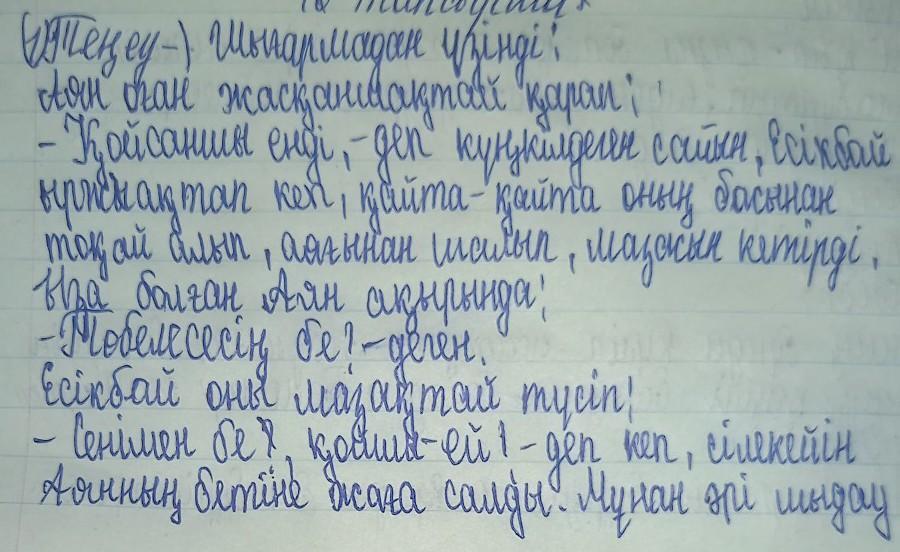 тапсырма
Теңеу-). Шығармадан үзінді:
Аян оған жасқаншақтай қарап;
- Қойсаншы енді, - деп күңкілдеген сайын, Есікбай
ыржыақтап кеп, қайта-қайта оның басынан
тоқай алып, аяғынан шалып, мазасын кетірді,
Ыза болған Аян ақырында:
- Төбелесесің бе? - деген.
Есікбай оны мазақтай түсіп:
- Сенімен бе?, қойшы-ей! - деп кеп, сілекейін
Аянның бетіне жаға салды. Мұнан әрі шыдау